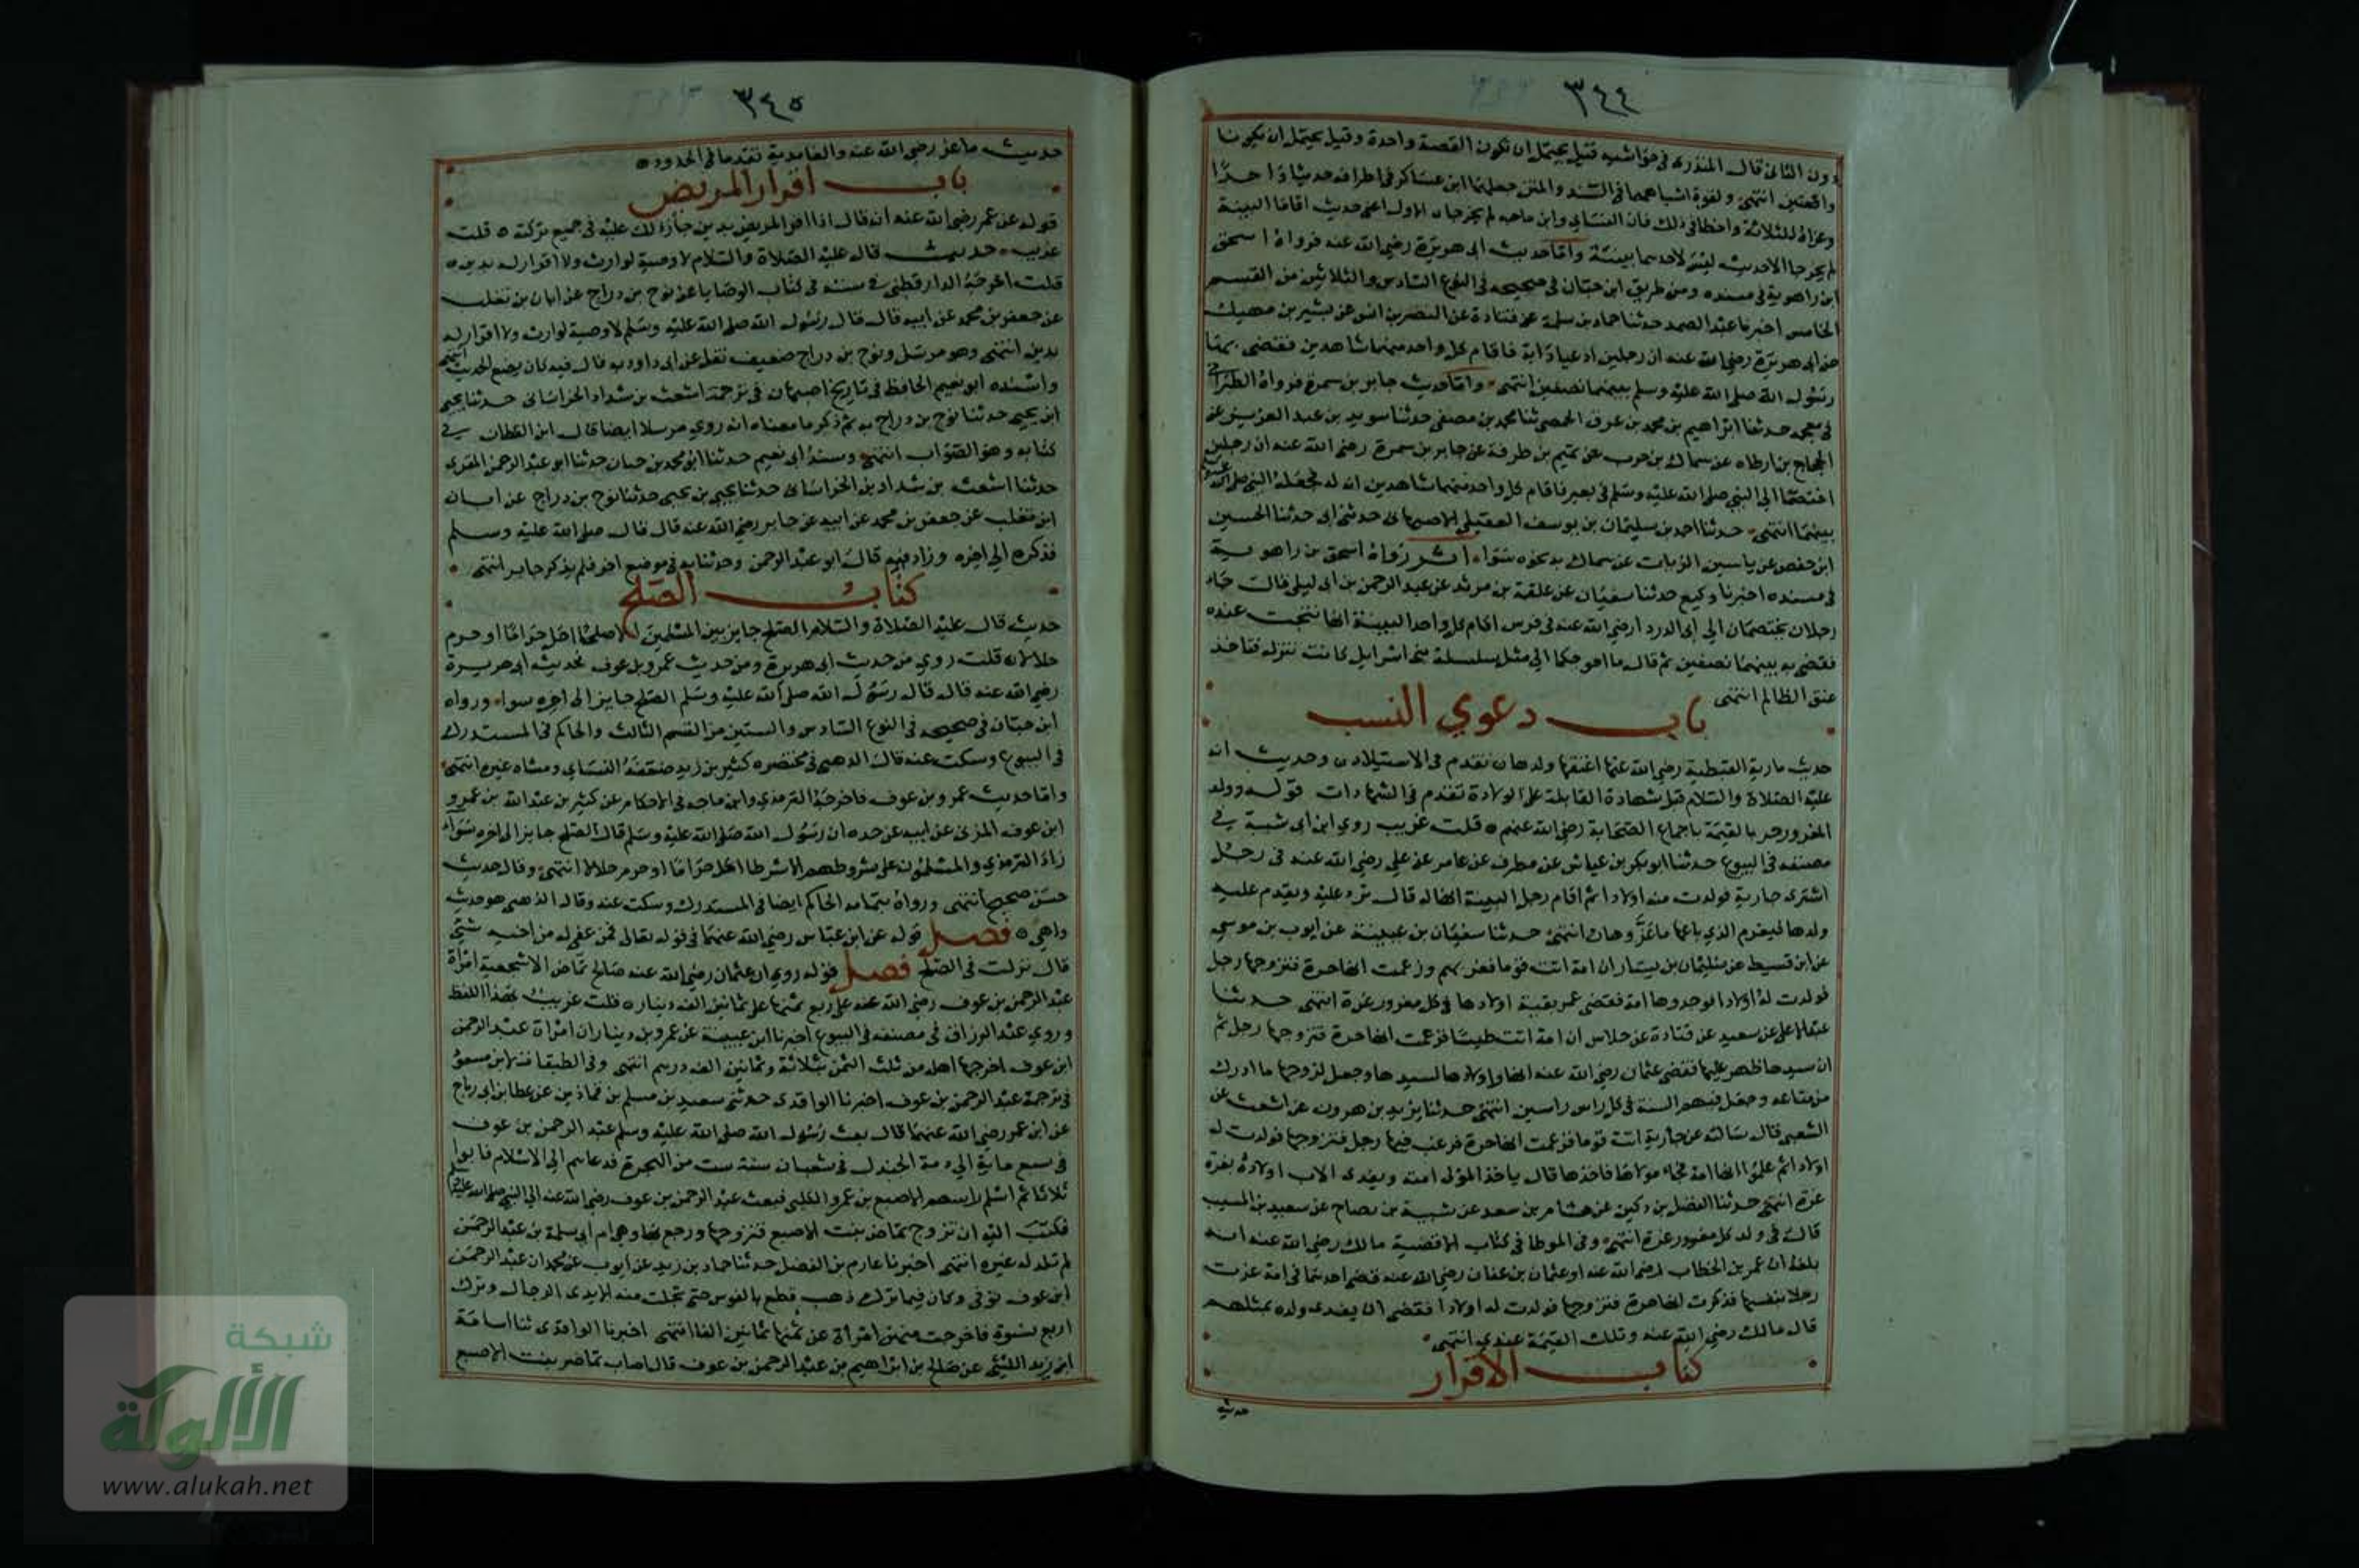 ٣٤٤
دون الثانى قال المنذرى فى حواشيه قيل يحتمل ان تكون القصة واحدة وقيل يحتمل ان يكونا
واقعتين انتهى ولقوة اشتباههما فى السند والمتن جعلهما ابن عساكر فى اطرافه حديثا واحدا
وعزاه للثلاثة واخطا فى ذلك فان النسائى وابن ماجه لم يخرجا الاول اعنى حديث اقاما البينة
لم يخرجا الا حديث ليس لاحدهما بينة واما حديث ابى هريرة رضى الله عنه فرواه اسحق
ابن راهوية فى مسنده ومن طريق ابن حبان فى صحيحه فى النوع السادس والثلاثين من القسم
الخامس اخبرنا عبد الصمد حدثنا حماد بن سلمة عن قتادة عن النضر بن انس عن بشير بن نهيك
عن ابى هريرة رضى الله عنه ان رجلين ادعيا دابة فاقام كل واحد منهما شاهدين فقضى بها
رسول الله صلى الله عليه وسلم بينهما نصفين انتهى واما حديث جابر بن سمرة فرواه الطبرانى
فى معجمه حدثنا ابراهيم بن محمد بن عرق الحمصى ثنا محمد بن مصفى حدثنا سويد بن عبد العزيز عن
الحجاج بن ارطاه عن سماك بن حرب عن تميم بن طرفة عن جابر بن سمرة رضى الله عنه ان رجلين
اختصما الى النبى صلى الله عليه وسلم فى بعير فاقام كل واحد منهما شاهدين انه له فجعله النبى صلى الله عليه وسلم
بينهما انتهى حدثنا احمد بن سليمان بن يوسف العقيلى الاصبهانى حدثنى ابى حدثنا الحسين
ابن حفص عن ياسين الزيات عن سماك به نحوه سواء اثر رواه اسحق بن راهوية
فى مسنده اخبرنا وكيع حدثنا سفيان عن علقمة بن مرثد عن عبد الرحمن بن ابى ليلى قال جاء
رجلان يختصمان الى ابى الدرداء رضى الله عنه فى فرس اقام كل واحد البينة انها نتجت عنده
فقضى به بينهما نصفين ثم قال ما احوجكما الى مثل سلسلة بنى اسرائيل كانت تنزل فتاخذ
عنق الظالم انتهى
باب دعوي النسب
حديث مارية القبطية رضى الله عنها اعتقها ولدها تقدم فى الاستيلاد وحديث انه
عليه الصلاة والسلام قبل شهادة القابلة على الولادة تقدم فى الشهادات قوله وولد
المغرور حر بالقيمة باجماع الصحابة رضى الله عنهم قلت غريب روي ابن ابى شيبة فى
مصنفه فى البيوع حدثنا ابو بكر بن عياش عن مطرف عن عامر عن على رضى الله عنه فى رجل
اشترى جارية فولدت منه اولادا ثم اقام رجل البينة انها له قال ترد عليه ويقوم عليه
ولدها فيغرم الذي باعها ما عز وهان انتهى حدثنا سفيان بن عيينة عن ايوب بن موسى
عن ابن قسيط عن سليمان بن يسار ان امة اتت قوما فغرتهم وزعمت انها حرة فتزوجها رجل
فولدت له اولادا فوجدوها امة فقضى عمر بقيمة اولادها فى كل مغرور غرة انتهى حدثنا
عبد الاعلى عن سعيد عن قتادة عن خلاس ان امة اتت طيئا فزعمت انها حرة فتزوجها رجل ثم
ان سيدها ظهر عليها فقضى عثمان رضى الله عنه انها واولادها لسيدها وجعل لزوجها ما ادرك
من متاعه وجعل فيهم السنة فى كل راس راسين انتهى حدثنا يزيد بن هرون عن اشعث عن
الشعبى قال سالته عن جارية اتت قوما فزعمت انها حرة فرغب فيها رجل فتزوجها فولدت له
اولادا ثم علموا انها امة فجاء مولاها فاخذها قال ياخذ المولى امته ويفدى الاب اولاده بغرة
غرة انتهى حدثنا الفضل بن دكين عن هشام بن سعد عن شيبة بن نصاح عن سعيد بن المسيب
قال فى ولد كل مغرور غرة انتهى وفى الموطا فى كتاب الاقضية مالك رضى الله عنه انه
بلغه ان عمر بن الخطاب رضى الله عنه او عثمان بن عفان رضى الله عنه قضى احدهما فى امة غرت
رجلا بنفسها فذكرت انها حرة فتزوجها فولدت له اولادا فقضى ان يفدى ولده بمثلهم
قال مالك رضى الله عنه وتلك القيمة عندي انتهى
كتاب الاقرار
حديث
٣٤٥
حديث ماعز رضى الله عنه والغامدية تقدما فى الحدود
باب اقرار المريض
قوله عن عمر رضى الله عنه انه قال اذا اقر المريض بدين جاز ذلك عليه فى جميع تركته قلت
غريب حديث قال عليه الصلاة والسلام لا وصية لوارث ولا اقرار له بدين
قلت اخرجه الدارقطنى فى سننه فى كتاب الوصايا عن نوح بن دراج عن ابان بن تغلب
عن جعفر بن محمد عن ابيه قال قال رسول الله صلى الله عليه وسلم لا وصية لوارث ولا اقرار له
بدين انتهى وهو مرسل ونوح بن دراج ضعيف نقل عن ابى داود به قال فيه كان يضع الحديث انتهى
واسنده ابو نعيم الحافظ فى تاريخ اصبهان فى ترجمة اشعث بن شداد الخراسانى حدثنا يحيى
ابن يحيى حدثنا نوح بن دراج به ثم ذكر ما معناه انه روي مرسلا ايضا قال ابن القطان فى
كتابه وهو الصواب انتهى وسند ابى نعيم حدثنا ابو محمد بن حيان حدثنا ابو عبد الرحمن المقرى
حدثنا اشعث بن شداد بن الخراسانى حدثنا يحيى بن يحيى حدثنا نوح بن دراج عن ابان
ابن تغلب عن جعفر بن محمد عن ابيه عن جابر رضى الله عنه قال قال صلى الله عليه وسلم
فذكره الى اخره وزاد فيه قال ابو عبد الرحمن وحدثنا به فى موضع اخر فلم يذكر جابر انتهى
كتاب الصلح
حديث قال عليه الصلاة والسلام الصلح جايز بين المسلمين الا صلحا احل حراما او حرم
حلالا قلت روي من حديث ابى هريرة ومن حديث عمرو بن عوف فحديث ابى هريرة
رضى الله عنه قال قال رسول الله صلى الله عليه وسلم الصلح جايز الى اخره سواء ورواه
ابن حبان فى صحيحه فى النوع السادس والستين من القسم الثالث والحاكم فى المستدرك
فى البيوع وسكت عنه قال الذهبى فى مختصره كثير بن زيد ضعفه النسائى ومشاه غيره انتهى
واما حديث عمرو بن عوف فاخرجه الترمذي وابن ماجه فى الاحكام عن كثير بن عبد الله بن عمرو
ابن عوف المزنى عن ابيه عن جده ان رسول الله صلى الله عليه وسلم قال الصلح جايز الى اخره سواء
زاد الترمذي والمسلمون على شروطهم الا شرطا احل حراما او حرم حلالا انتهى وقال حديث
حسن صحيح انتهى ورواه بتمامه الحاكم ايضا فى المستدرك وسكت عنه وقال الذهبى هو حديث
واهى فصل قوله عن ابن عباس رضى الله عنهما فى قوله تعالى فمن عفى له من اخيه شئ
قال نزلت فى الصلح فصل قوله روي ان عثمان رضى الله عنه صالح تماضر الاشجعية امراة
عبد الرحمن بن عوف رضى الله عنه على ربع ثمنها على ثمانين الف دينار قلت غريب بهذا اللفظ
وروي عبد الرزاق فى مصنفه فى البيوع اخبرنا ابن عيينة عن عمرو بن دينار ان امراة عبد الرحمن
ابن عوف اخرجها اهله من ثلث الثمن بثلاثة وثمانين الف درهم انتهى وفى الطبقات لابن سعد
فى ترجمة عبد الرحمن بن عوف اخبرنا الواقدى حدثنى سعيد بن مسلم بن قماذين عن عطا بن ابى رباح
عن ابن عمر رضى الله عنهما قال بعث رسول الله صلى الله عليه وسلم عبد الرحمن بن عوف
فى سبع ماية الى دومة الجندل فى شعبان سنة ست من الهجرة فدعاهم الى الاسلام فابوا
ثلاثا ثم اسلم راسهم الاصبع بن عمرو الكلبى فبعث عبد الرحمن بن عوف رضى الله عنه الى النبى صلى الله عليه وسلم
فكتب اليه ان تزوج تماضر بنت الاصبع فتزوجها ورجع بها وهى ام ابى سلمة بن عبد الرحمن
لم تلد له غيره انتهى اخبرنا عارم بن الفضل حدثنا حماد بن زيد عن ايوب عن محمد ان عبد الرحمن
ابن عوف توفى وكان فيما ترك ذهب قطع بالفوس حتى مجلت منه ايدى الرجال وترك
اربع نسوة فاخرجت منهن امرأة عن ثمنها ثمانين الفا انتهى اخبرنا الواقدى ثنا اسامة
ابن زيد الليثى عن صالح بن ابراهيم بن عبد الرحمن بن عوف قال اصاب تماضر بنت الاصبع
شبكة
الألوكة
www.alukah.net